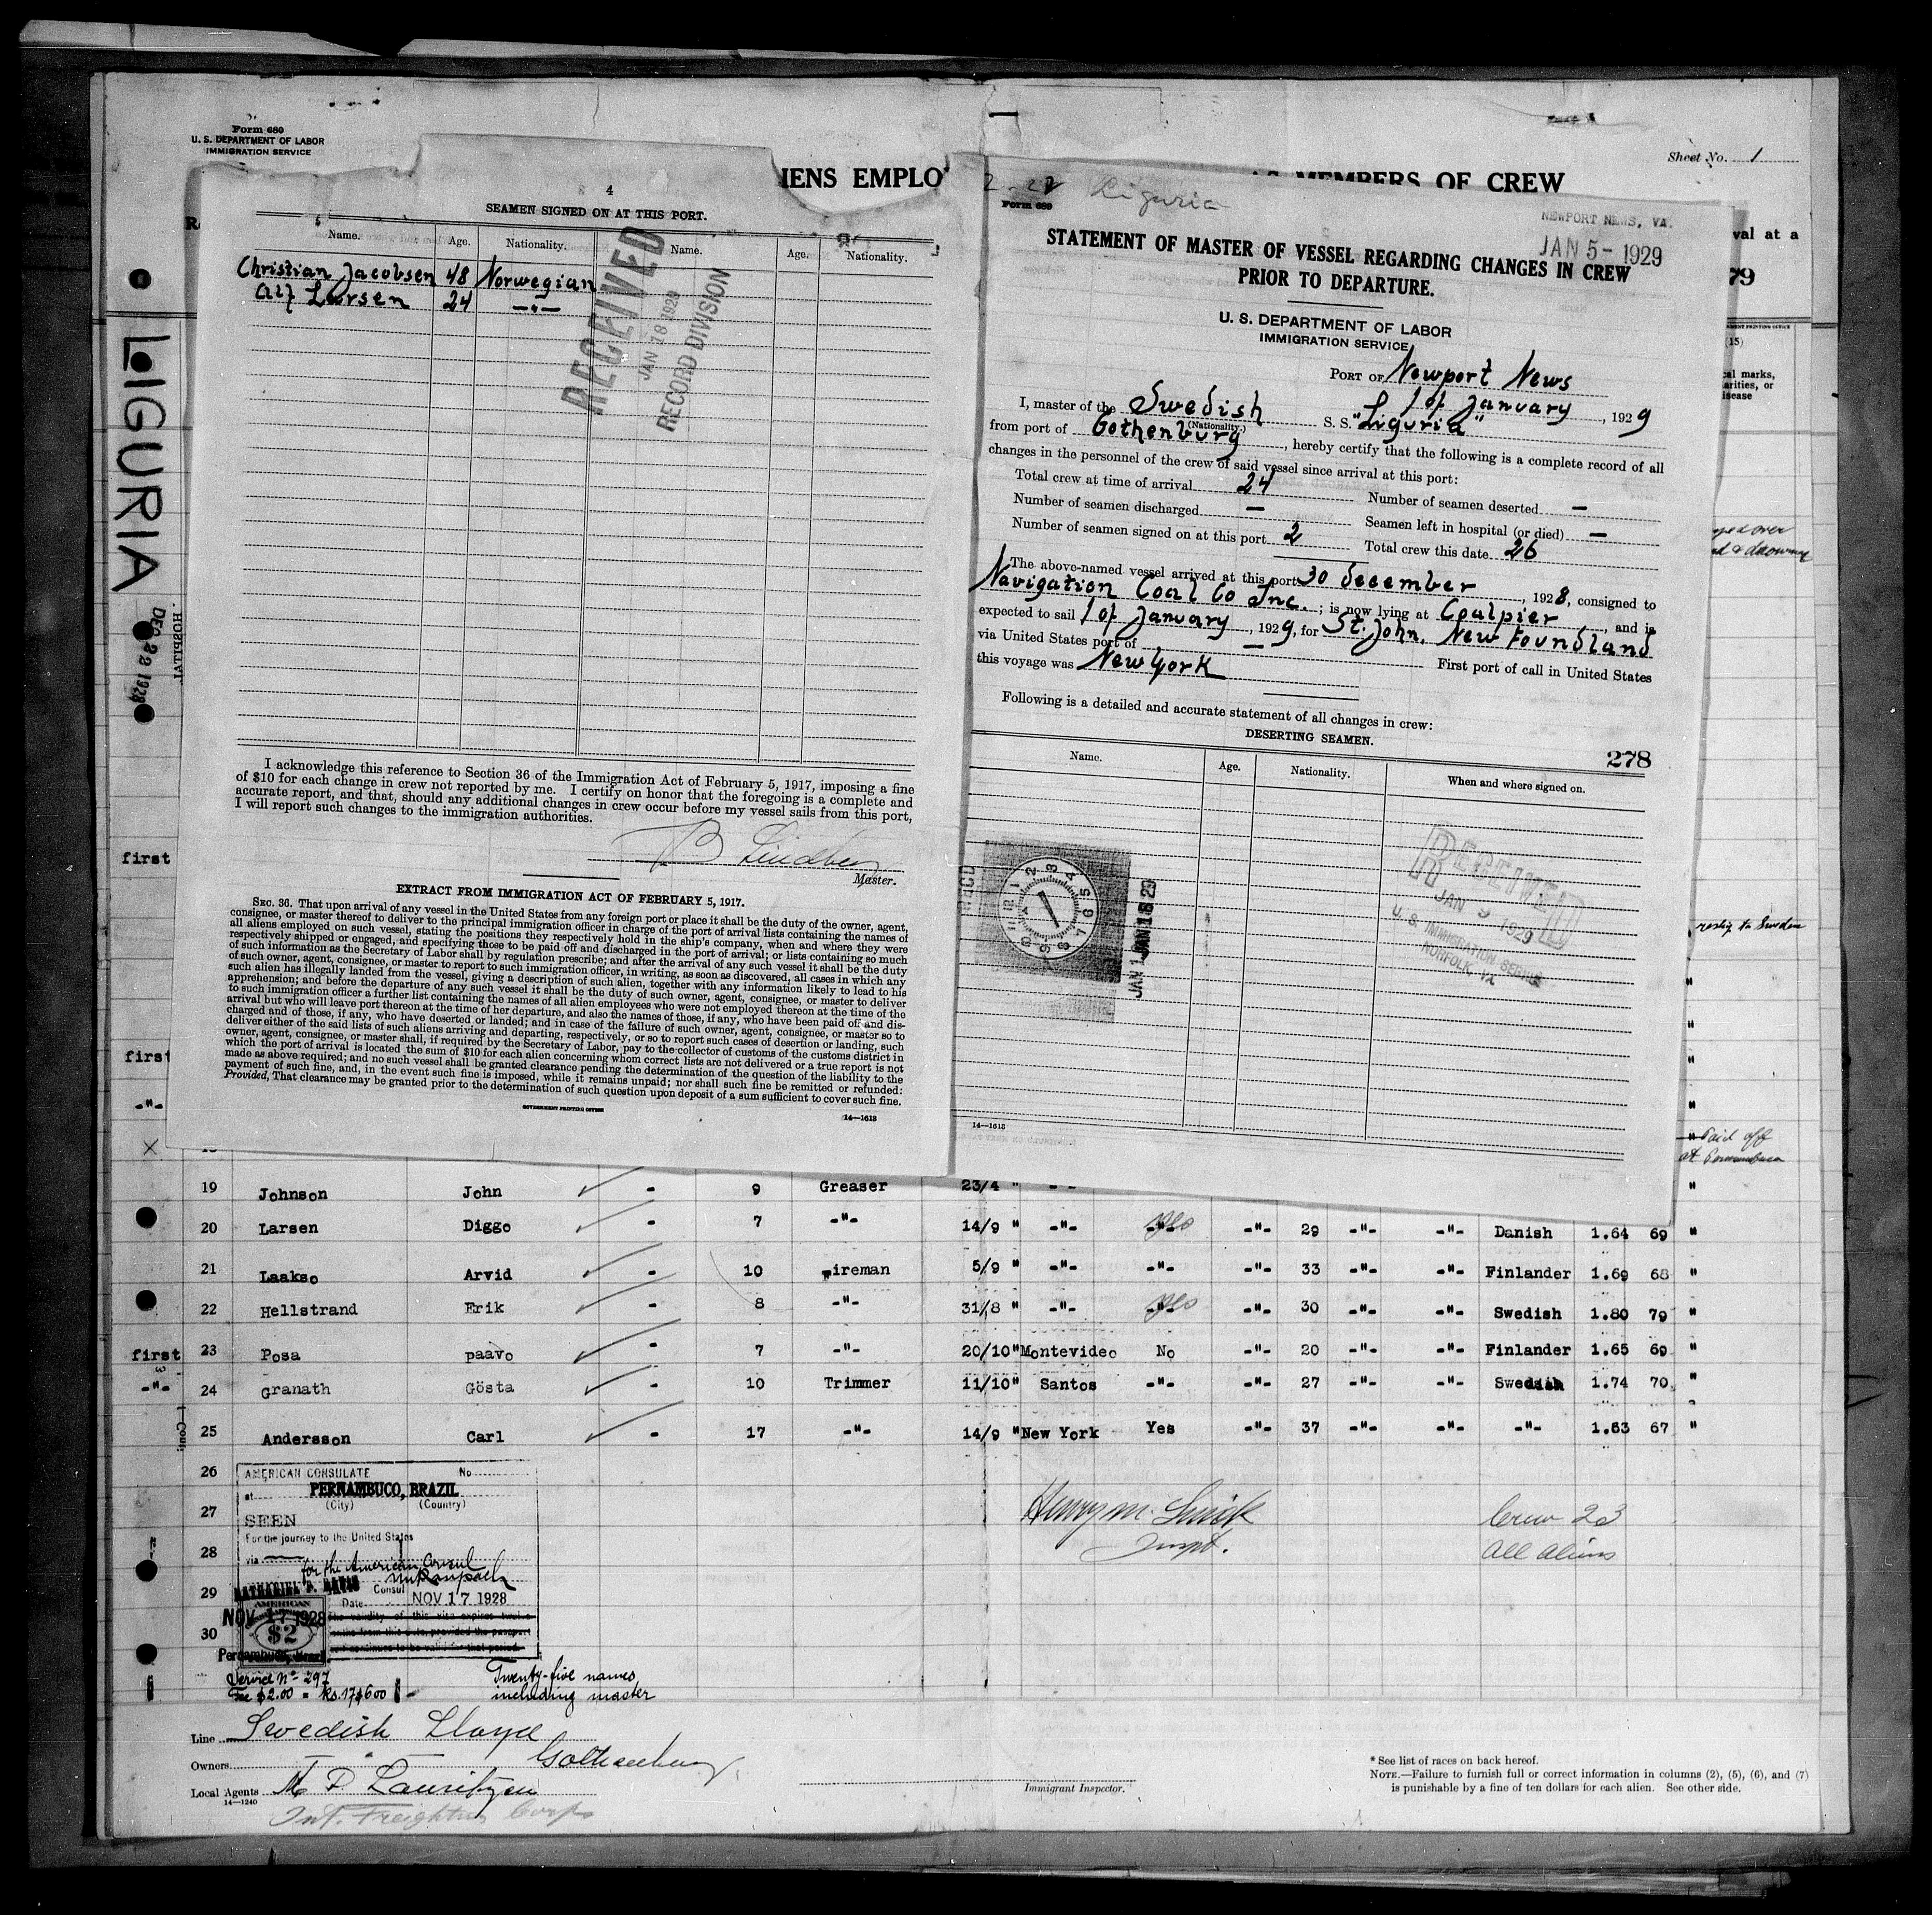 Form 680
U. S. DEPARTMENT OF LABOR
IMMIGRATION SERVICE
IENS EMPLO
MEMBERS OF CREW
Sheet No. 1
val at a
79
(15)
cal marks,
arities, or
isease
LIGURIA
DEC 22 1928
HOSPITAL
4
SEAMEN SIGNED ON AT THIS PORT.
Name. Age. Nationality. Name. Age. Nationality.
Christian Jacobsen 48 Norwegian
Alf Larsen 24 -"-
RECEIVED
JAN 18 1929
RECORD DIVISION
I acknowledge this reference to Section 36 of the Immigration Act of February 5, 1917, imposing a fine
of $10 for each change in crew not reported by me. I certify on honor that the foregoing is a complete and
accurate report, and that, should any additional changes in crew occur before my vessel sails from this port,
I will report such changes to the immigration authorities.
B Lindberg
Master.
EXTRACT FROM IMMIGRATION ACT OF FEBRUARY 5, 1917.
SEC. 36. That upon arrival of any vessel in the United States from any foreign port or place it shall be the duty of the owner, agent,
consignee, or master thereof to deliver to the principal immigration officer in charge of the port of arrival lists containing the names of
all aliens employed on such vessel, stating the positions they respectively hold in the ship's company, when and where they were
respectively shipped or engaged, and specifying those to be paid off and discharged in the port of arrival; or lists containing so much
of such information as the Secretary of Labor shall by regulation prescribe; and after the arrival of any such vessel it shall be the duty
of such owner, agent, consignee, or master to report to such immigration officer, in writing, as soon as discovered, all cases in which any
such alien has illegally landed from the vessel, giving a description of such alien, together with any information likely to lead to his
apprehension; and before the departure of any such vessel it shall be the duty of such owner, agent, consignee, or master to deliver
to such immigration officer a further list containing the names of all alien employees who were not employed thereon at the time of the
arrival but who will leave port thereon at the time of her departure, and also the names of those, if any, who have been paid off and dis-
charged and of those, if any, who have deserted or landed; and in case of the failure of such owner, agent, consignee, or master so to
deliver either of the said lists of such aliens arriving and departing, respectively, or so to report such cases of desertion or landing, such
owner, agent, consignee, or master shall, if required by the Secretary of Labor, pay to the collector of customs of the customs district in
which the port of arrival is located the sum of $10 for each alien concerning whom correct lists are not delivered or a true report is not
made as above required; and no such vessel shall be granted clearance pending the determination of the question of the liability to the
payment of such fine, and, in the event such fine is imposed, while it remains unpaid; nor shall such fine be remitted or refunded:
Provided, That clearance may be granted prior to the determination of such question upon deposit of a sum sufficient to cover such fine.
GOVERNMENT PRINTING OFFICE
14—1613
Liguria
Form 689
NEWPORT NEWS, VA.
JAN 5 - 1929
STATEMENT OF MASTER OF VESSEL REGARDING CHANGES IN CREW
PRIOR TO DEPARTURE.
U. S. DEPARTMENT OF LABOR
IMMIGRATION SERVICE
PORT OF Newport News
1 of January, 1929
I, master of the Swedish (Nationality.) S. S. "Liguria"
from port of Gothenburg, hereby certify that the following is a complete record of all
changes in the personnel of the crew of said vessel since arrival at this port:
Total crew at time of arrival 24 Number of seamen deserted —
Number of seamen discharged — Seamen left in hospital (or died) —
Number of seamen signed on at this port 2 Total crew this date 26
The above-named vessel arrived at this port 30 December, 1928, consigned to
Navigation Coal Co Inc.; is now lying at Coalpier, and is
expected to sail 1 of January, 1929, for St. John, New Foundland
via United States port of — First port of call in United States
this voyage was New York
Following is a detailed and accurate statement of all changes in crew:
DESERTING SEAMEN.
278
Name. Age. Nationality. When and where signed on.
RECEIVED
JAN 5 1929
U. S. IMMIGRATION SERVICE
NORFOLK, VA
REC'D
14—1613
first
first
-"-
X
reship to Sweden
Paid off
at Pernambuco
19 Johnson John - 9 Greaser 23/4 "
20 Larsen Diggo - 7 -"- 14/9 " -"- yes -"- 29 -"- -"- Danish 1.64 69 "
21 Laakso Arvid - 10 Fireman 5/9 " -"- -"- -"- 33 -"- -"- Finlander 1.69 68 "
22 Hellstrand Erik - 8 -"- 31/8 " -"- yes -"- 30 -"- -"- Swedish 1.80 79 "
first 23 Posa paavo - 7 -"- 20/10 " Montevideo No -"- 20 -"- -"- Finlander 1.65 69 "
-"- 24 Granath Gösta - 10 Trimmer 11/10 " Santos -"- -"- 27 -"- -"- Swedish 1.74 70 "
25 Andersson Carl - 17 -"- 14/9 " New York Yes -"- 37 -"- -"- -"- 1.63 67 "
26
27
28
29
30
AMERICAN CONSULATE No
at PERNAMBUCO, BRAZIL
(City) (Country)
SEEN
For the journey to the United States
via
for the American Consul
Consul
Date NOV 17 1928
AMERICAN
NOV 17 1928
$2
Service No 297
Fee $2.00 = Rs.17$600
Twenty-five names
including master
Inspt.
Crew 23
All aliens
Line Swedish Lloyd
Owners Gothenburg
Local Agents M P Lauritzen
14—1240
Int. Freighting Corps
Immigrant Inspector.
* See list of races on back hereof.
NOTE.—Failure to furnish full or correct information in columns (2), (5), (6), and (7)
is punishable by a fine of ten dollars for each alien. See other side.